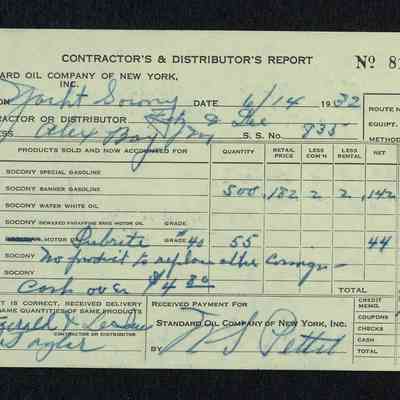 CONTRACTOR'S & DISTRIBUTOR'S REPORT Nº 81
ARD OIL COMPANY OF NEW YORK, INC.
ON Yacht Socony DATE 6/14 1932
CONTRACTOR OR DISTRIBUTOR & Lee
ESS Alex Bay NY S. S. No. 835
ROUTE NO
EQUIPT.
METHOD
PRODUCTS SOLD AND NOW ACCOUNTED FOR QUANTITY RETAIL PRICE LESS COM'N LESS RENTAL NET
SOCONY SPECIAL GASOLINE
SOCONY BANNER GASOLINE 500 .182 2 2 .142
SOCONY WATER WHITE OIL
SOCONY DEWAXED PARAFFINE BASE MOTOR OIL GRADE
MOTOR Lubrite GRADE #40 55 44
SOCONY No product to replace other Consign-
SOCONY Cash over $4 80 TOTAL
IT IS CORRECT, RECEIVED DELIVERY
SAME QUANTITIES OF SAME PRODUCTS
CONTRACTOR OR DISTRIBUTOR
RECEIVED PAYMENT FOR
STANDARD OIL COMPANY OF NEW YORK, INC.
BY
CREDIT MEMO.
COUPONS
CHECKS
CASH
TOTAL